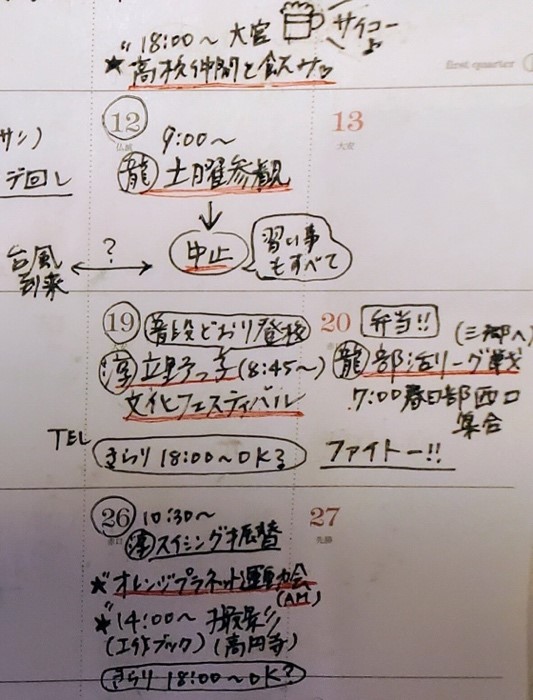 18:00〜 大宮 サイコー
★高校仲間と飲み
first quarter
12
9:00〜
龍 土曜参観
↓
中止
習い事
もすべて
台風
到来
?
サン)
デ回し
13
大安
19
普段どおり登校
淳 立野っ子(8:45〜)
文化フェスティバル
TEL
きらり 18:00〜OK?
20
弁当!!
(三郷へ)
龍 部活リーグ戦
7:00春日部西口
集合
ファイトー!!
26
10:30〜
淳 スイミング振替
★オレンジプラネット運動会
(AM)
★14:00〜 撮影
(工作ブック)(高円寺)
きらり 18:00〜OK?
27
先勝